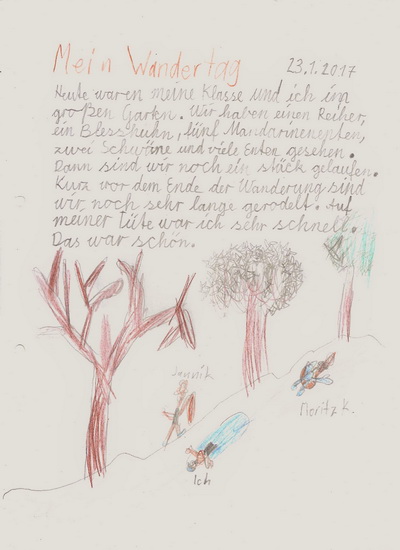 Mein Wandertag 23.1.2017
Heute waren meine Klasse und ich im
großen Garten. Wir haben einen Reiher,
ein Blesshuhn, fünf Mandarinenenten,
zwei Schwäne und viele Enten gesehen.
Dann sind wir noch ein stück gelaufen.
Kurz vor dem Ende der Wanderung sind
wir noch sehr lange gerodelt. Auf
meiner Tüte war ich sehr schnell.
Das war schön.
Jannik
Moritz K.
Ich